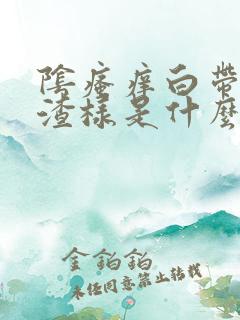 陰瘙痒白帶
渣樣是什麼
金鉑鉑
未经同意禁止转载